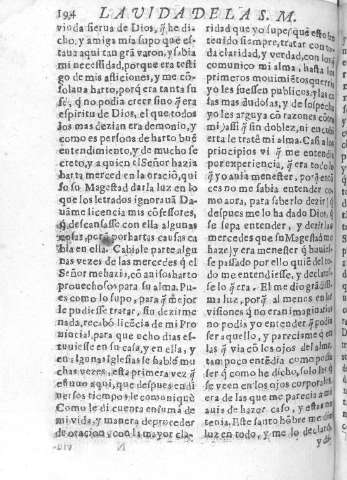 194 LA VIDA DE LA S. M.
viuda sierua de Dios, q̃ he di-
cho, y amiga mia supo que es-
taua aqui tan gran varon, y sabia
mi necessidad, porque era testi
go de mis aflictiones, y me cõ-
solaua harto, porq̃ era tanta su
fè, q̃ no podia creer sino q̃ era
espiritu de Dios, el que todos
los mas dezian era demonio, y
como es persona de harto buẽ
entendimiento, y de mucho se
creto, y a quien el Señor hazia
harta merced en la oraciõ, qui
so su Magestad darla luz en lo
que los letrados ignorauã Da-
uãme licencia mis cõfessores,
q̃ descansasse con ella algunas
cosas, porq̃ por hartas causas ca
bia en ella. Cabiale parte algu-
nas vezes de las mercedes q̃ el
Señor me hazia, cõ auisos harto
prouechosos para su alma. Pu-
es como lo supo, para q̃ mejor
le pudiesse tratar, sin dezirme
nada, recabò licẽcia de mi Pro
uincial, para que ocho dias es-
tuuiesse en su casa, y en ella, y
en algunas Iglesias le hablè mu
chas vezes, esta primera vez q̃
estuuo aqui, que despues en di
uersos tiempos le comuniquè
Como le di cuenta en suma de
mi vida, y manera de proceder
de oracion, con la mayor cla-
ridad que yo supe: que esto he
tenido siempre, tratar con to-
da claridad, y verdad, con los q̃
comunico mi alma, hasta los
primeros mouimiẽtos querria
yo les fuessen publicos, y las co
sas mas dudosas, y de sospecha
yo les arguya cõ razones contra
mi, assi q̃ sin doblez, ni encubi
erta le tratè mi alma. Casi a los
principios vi q̃ me entendia
por experiencia, q̃ era todo lo
q̃ yo auia menester, porq̃ entõ
ces no me sabia entender co-
mo aora, para saberlo dezir, q̃
despues me lo ha dado Dios, q̃
se sepa entender, y dezir las
mercedes que su Magestad me
haze, y era menester q̃ huuies-
se passado por ello quiẽ del to-
do me entendiesse, y declaras-
se lo q̃ era. El me dio grãdissi-
ma luz, porq̃ al menos en las
visiones q̃ no eran imaginarias
no podia yo entender q̃ podia
ser aquello, y pareciame q̃ en
las q̃ via cõ los ojos del alma,
tampoco entẽdia como podia
ser q̃ como he dicho, solo las q̃
se veen en los ojos corporales
era de las que me parecia a mi
auia de hazer caso, y estas no
tenia. Este santo hõbre me dio
luz en todo, y me lo declarò